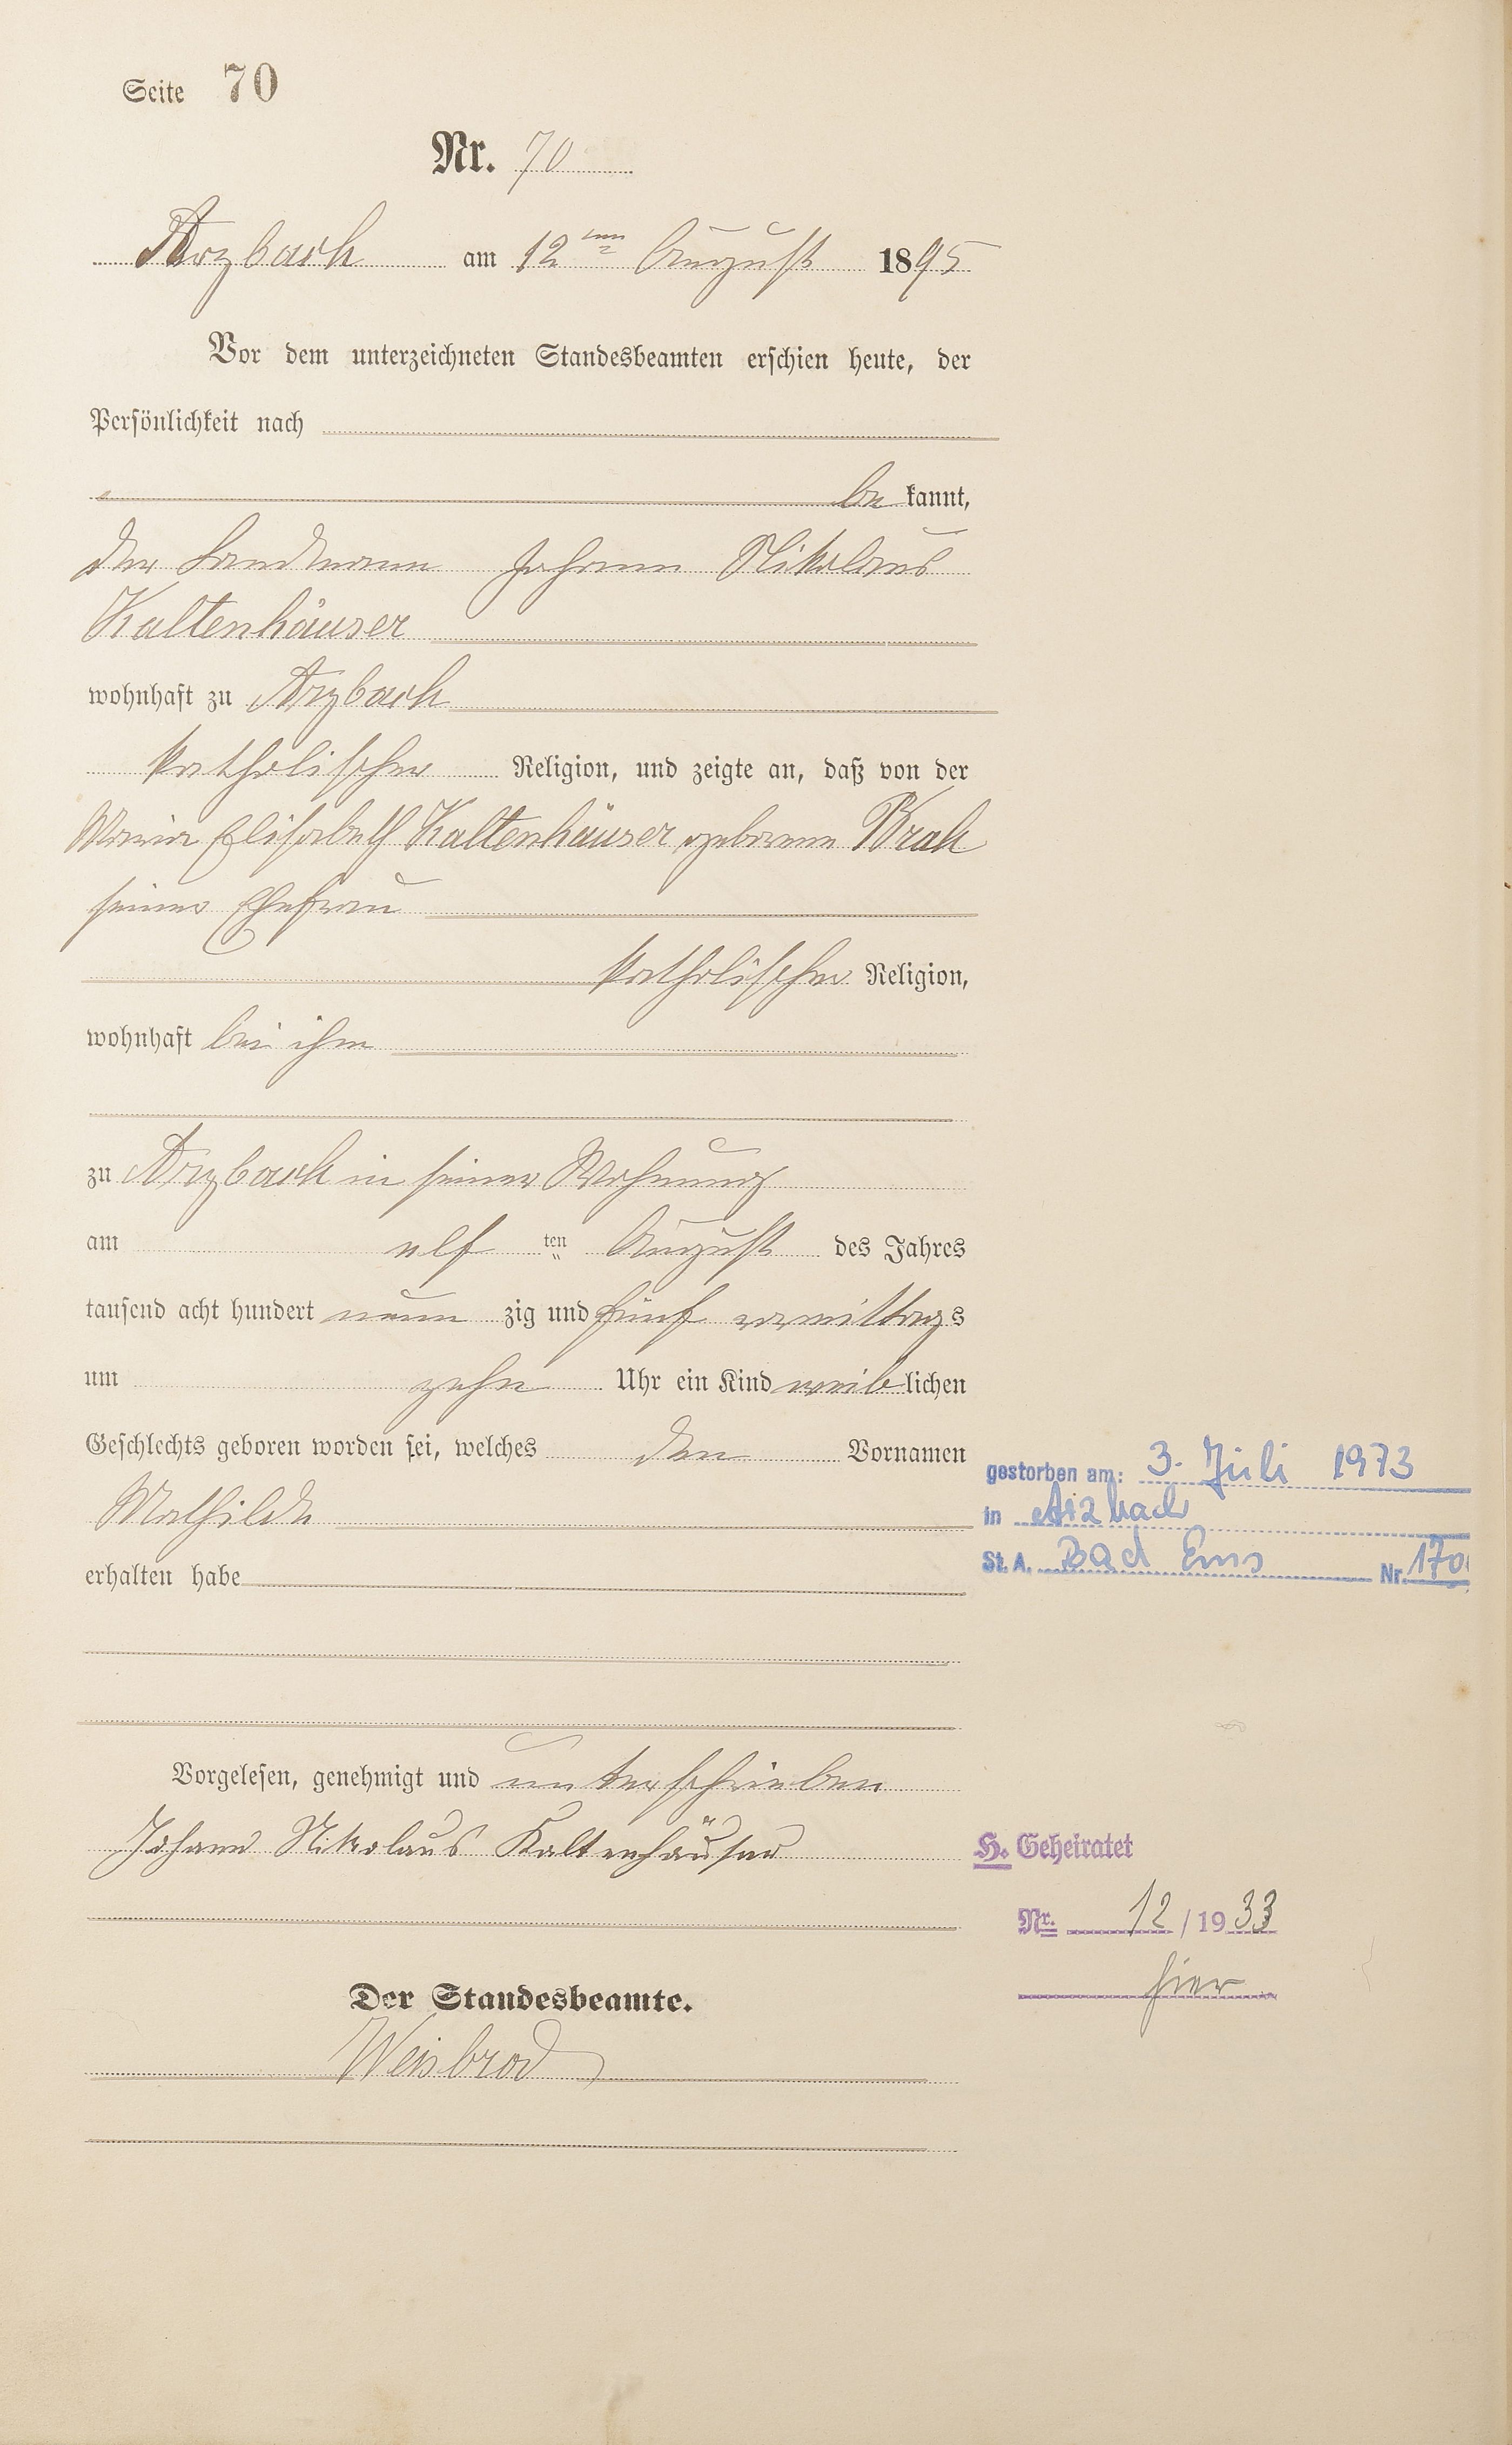 Seite 70
Nr. 70
Arzbach am 12ten August 1895
Vor dem unterzeichneten Standesbeamten erschien heute, der
Persönlichkeit nach
be kannt,
der Landmann Johann Nikolaus
Kaltenhäuser
wohnhaft zu Arzbach
katholischer Religion, und zeigte an, daß von der
Maria Elisabeth Kaltenhäuser, geborene Brah
seiner Ehefrau
katholischer Religion,
wohnhaft bei ihm
zu Arzbach in seiner Wohnung
am elf ten August des Jahres
tausend acht hundert neun zig und fünf vormittags
um zehn Uhr ein Kind weiblichen
Geschlechts geboren worden sei, welches den Vornamen
Mathilde
erhalten habe
gestorben am: 3. Juli 1973
in Arzbach
St. A. Bad Ems Nr. 170
Vorgelesen, genehmigt und unterschrieben
Johann Nikolaus Kaltenhäuser
H. Geheiratet
Nr. 12 / 1933
hier
Der Standesbeamte.
Weisbrod